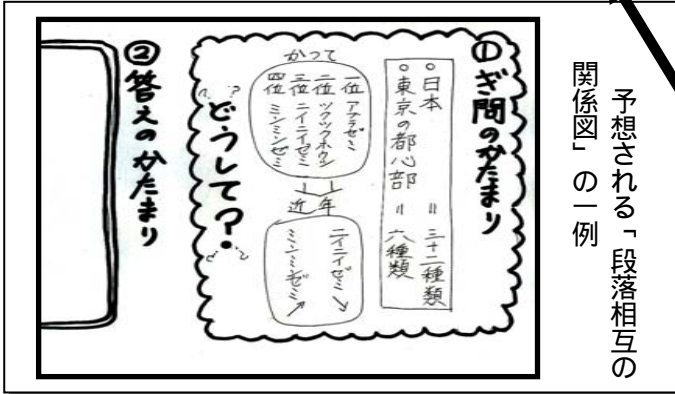 予想される「段落相互の
関係図」の一例
①ぎ問のかたまり
○日本 = 三十二種類
○東京の都心部 = 六種類
かつて
一位 アブラゼミ
二位 ツクツクホウシ
三位 ニイニイゼミ
四位 ミンミンゼミ
近年
ニイニイゼミ↘
ミンミンゼミ↗
?どうして?
②答えのかたまり